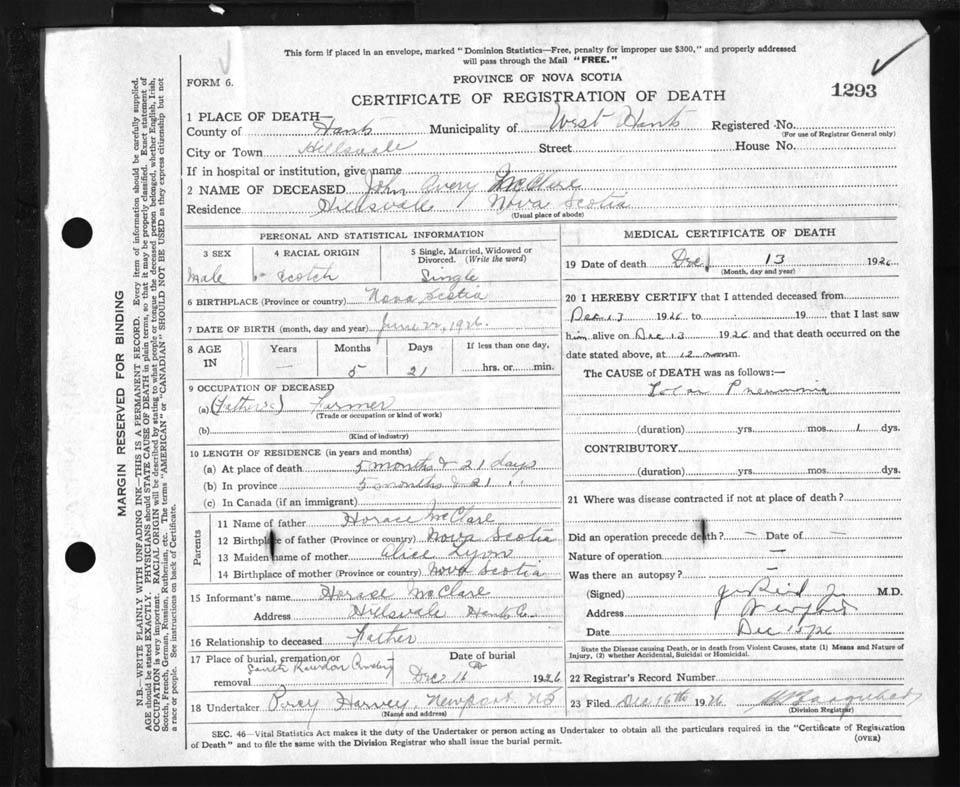 This form if placed in an envelope, marked "Dominion Statistics—Free, penalty for improper use $300," and properly addressed
will pass through the Mail "FREE."
FORM 6.
PROVINCE OF NOVA SCOTIA
CERTIFICATE OF REGISTRATION OF DEATH
1293
1 PLACE OF DEATH—
County of Hants Municipality of West Hants Registered No.
(For use of Registrar General only)
City or Town Hillsvale Street House No.
If in hospital or institution, give name
2 NAME OF DECEASED John Avery McClare
Residence Hillsvale Nova Scotia
(Usual place of abode)
PERSONAL AND STATISTICAL INFORMATION
3 SEX 4 RACIAL ORIGIN 5 Single, Married, Widowed or Divorced. (Write the word)
Male Scotch Single
6 BIRTHPLACE (Province or country) Nova Scotia
7 DATE OF BIRTH (month, day and year) June 22, 1926.
8 AGE IN Years Months Days If less than one day,
— 5 21 hrs. or min.
9 OCCUPATION OF DECEASED
(a) (Fathers) Farmer
(Trade or occupation or kind of work)
(b)
(Kind of industry)
10 LENGTH OF RESIDENCE (in years and months)
(a) At place of death 5 months & 21 days
(b) In province 5 months & 21 " "
(c) In Canada (if an immigrant)
Parents
11 Name of father Horace McClare
12 Birthplace of father (Province or country) Nova Scotia
13 Maiden name of mother Alice Lyon
14 Birthplace of mother (Province or country) Nova Scotia
15 Informant's name Horace McClare
Address Hillsvale Hants Co.
16 Relationship to deceased Father
17 Place of burial, cremation or removal South Rawdon Date of burial Dec 16 1926
18 Undertaker Percy Harvey, Newport NS
(Name and address)
MEDICAL CERTIFICATE OF DEATH
19 Date of death Dec. 13 1926
(Month, day and year)
20 I HEREBY CERTIFY that I attended deceased from
Dec 13 1926 to 19 that I last saw
him alive on Dec 13 1926 and that death occurred on the
date stated above, at 12 m.
The CAUSE of DEATH was as follows:—
Lobar Pneumonia
(duration) yrs. mos. 1 dys.
CONTRIBUTORY
(duration) yrs. mos. dys.
21 Where was disease contracted if not at place of death?
Did an operation precede death? — Date of —
Nature of operation —
Was there an autopsy? —
(Signed) M.D.
Address Newport
Date Dec 15/26
State the Disease causing Death, or in death from Violent Causes, state (1) Means and Nature of
Injury, (2) whether Accidental, Suicidal or Homicidal.
22 Registrar's Record Number
23 Filed Dec 16th 1926
(Division Registrar)
SEC. 46—Vital Statistics Act makes it the duty of the Undertaker or person acting as Undertaker to obtain all the particulars required in the "Certificate of Registration
of Death" and to file the same with the Division Registrar who shall issue the burial permit.
(OVER)
MARGIN RESERVED FOR BINDING
N.B.—WRITE PLAINLY WITH UNFADING INK—THIS IS A PERMANENT RECORD. Every item of information should be carefully supplied.
AGE should be stated EXACTLY. PHYSICIANS should STATE CAUSE OF DEATH in plain terms, so that it may be properly classified. Exact statement of
OCCUPATION is very important. RACIAL ORIGIN will be described by stating to what people or tongue the deceased person belonged, whether English, Irish,
Scotch, French, German, Russian, Ruthenian, etc. The terms "AMERICAN" or "CANADIAN" SHOULD NOT BE USED as they express citizenship but not
a race or people. See instructions on back of Certificate.